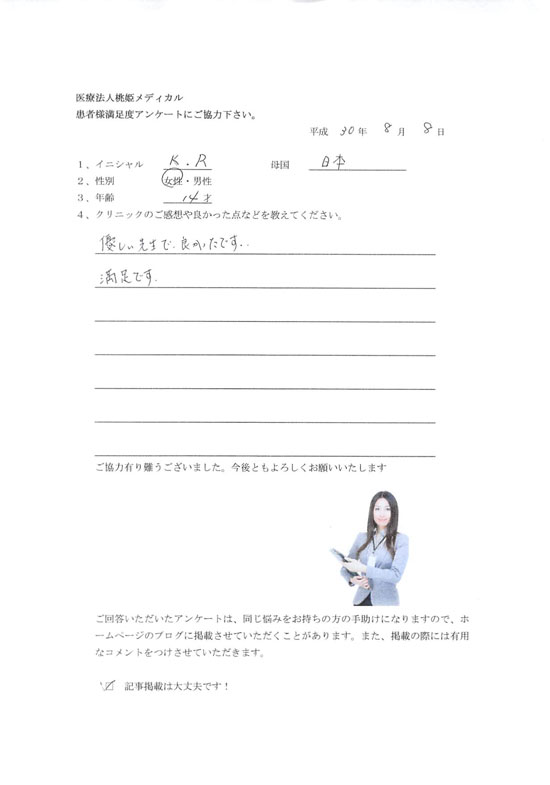 医療法人桃姫メディカル
患者様満足度アンケートにご協力下さい。
平成 30 年 8 月 8 日
1、イニシャル K.R 母国 日本
2、性別 女性・男性
3、年齢 14才
4、クリニックのご感想や良かった点などを教えてください。
優しい先生で、良かったです..
満足です.
ご協力有り難うございました。今後ともよろしくお願いいたします
ご回答いただいたアンケートは、同じ悩みをお持ちの方の手助けになりますので、ホ
ームページのブログに掲載させていただくことがあります。また、掲載の際には有用
なコメントをつけさせていただきます。
☑ 記事掲載は大丈夫です！